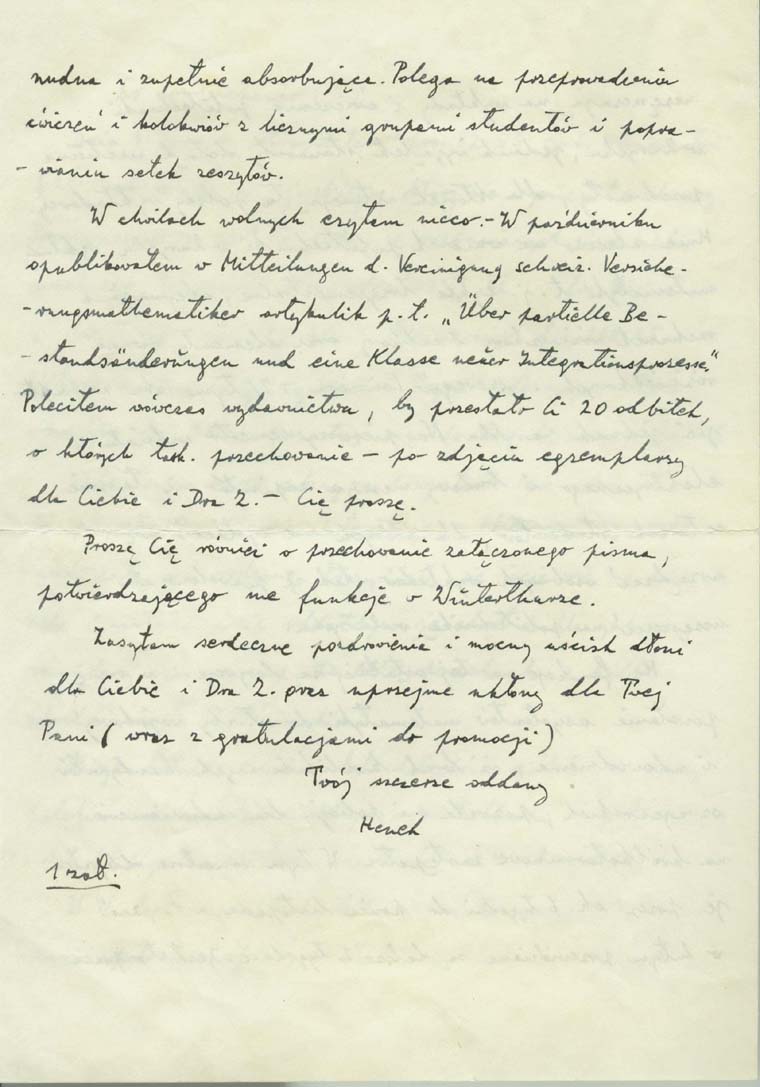 nudna i zupełnie absorbująca. Polega na przeprowadzeniu
ćwiczeń i kolokwiów z licznymi grupami studentów i popra-
-wianiu setek zeszytów.
W chwilach wolnych czytam nieco.- W październiku
opublikowałem w Mitteilungen d. Vereinigung schweiz. Versiche-
-rungsmathematiker artykulik p.t. „Über partielle Be-
-standsänderungen und eine Klasse neuer Integrationsprozesse."
Poleciłem wówczas wydawnictwu, by przesłało Ci 20 odbitek,
o których łask. przechowanie – po zdjęciu egzemplarzy
dla Ciebie i Dra Z. – Cię proszę.
Proszę Cię również o przechowanie załączonego pisma,
potwierdzającego me funkcje w Winterthurze.
Zasyłam serdeczne pozdrowienia i mocny uścisk dłoni
dla Ciebie i Dra Z. oraz uprzejme ukłony dla Twej
Pani (wraz z gratulacjami do promocji)
Twój szczerze oddany
Henek
1 zał.